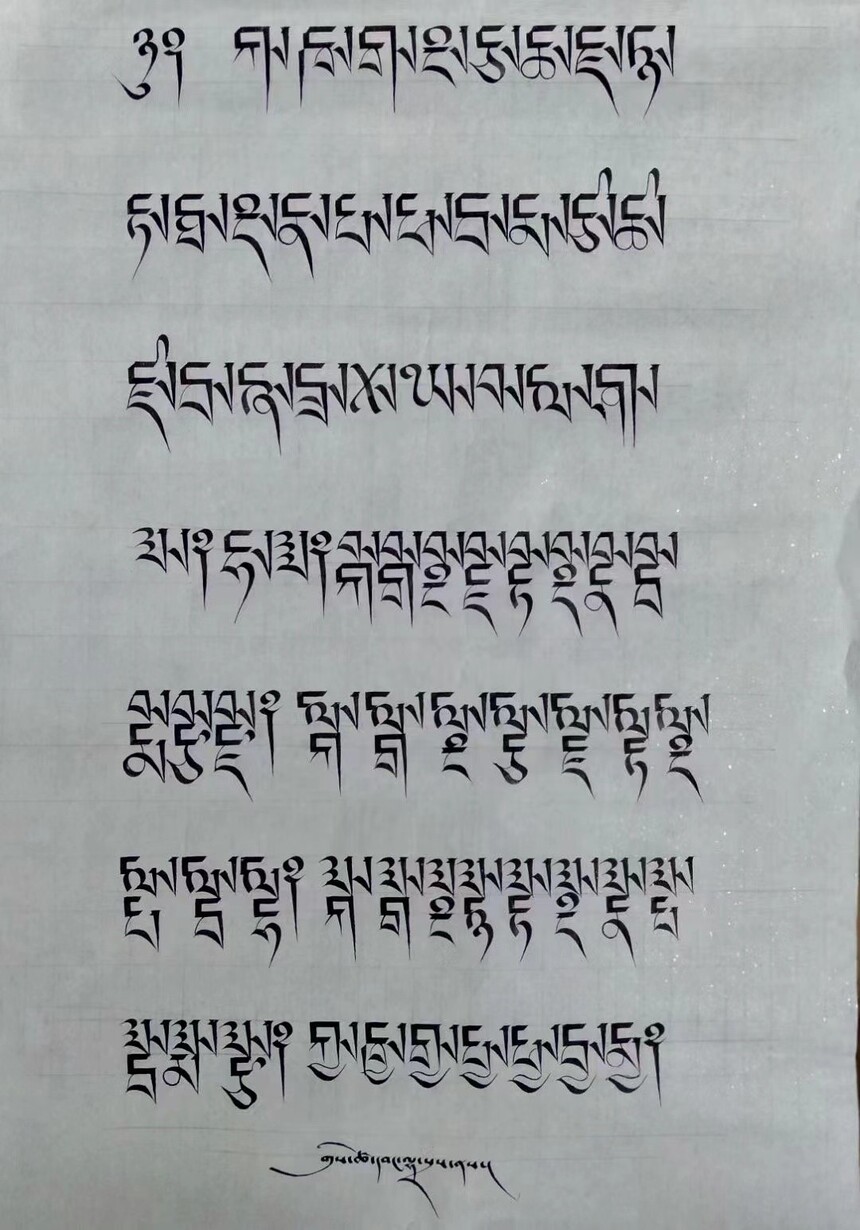 ༄། ཀ་ཁ་ག་ང་ཅ་ཆ་ཇ་ཉ་
ཏ་ཐ་ད་ན་པ་ཕ་བ་མ་ཙ་ཚ་
ཛ་ཝ་ཞ་ཟ་འ་ཡ་ར་ལ་ཤ་
ས། ཧ་ཨ། རྐ་རྒ་རྔ་རྗ་རྟ་རྡ་རྣ་རྦ་
རྨ་རྩ་རྫ། ལྐ་ལྒ་ལྔ་ལྕ་ལྗ་ལྟ་ལྡ་
ལྤ་ལྦ་ལྷ། སྐ་སྒ་སྔ་སྙ་སྟ་སྡ་སྣ་སྤ་
སྦ་སྨ་སྩ། ཀྱ་ཁྱ་གྱ་པྱ་ཕྱ་བྱ་མྱ།